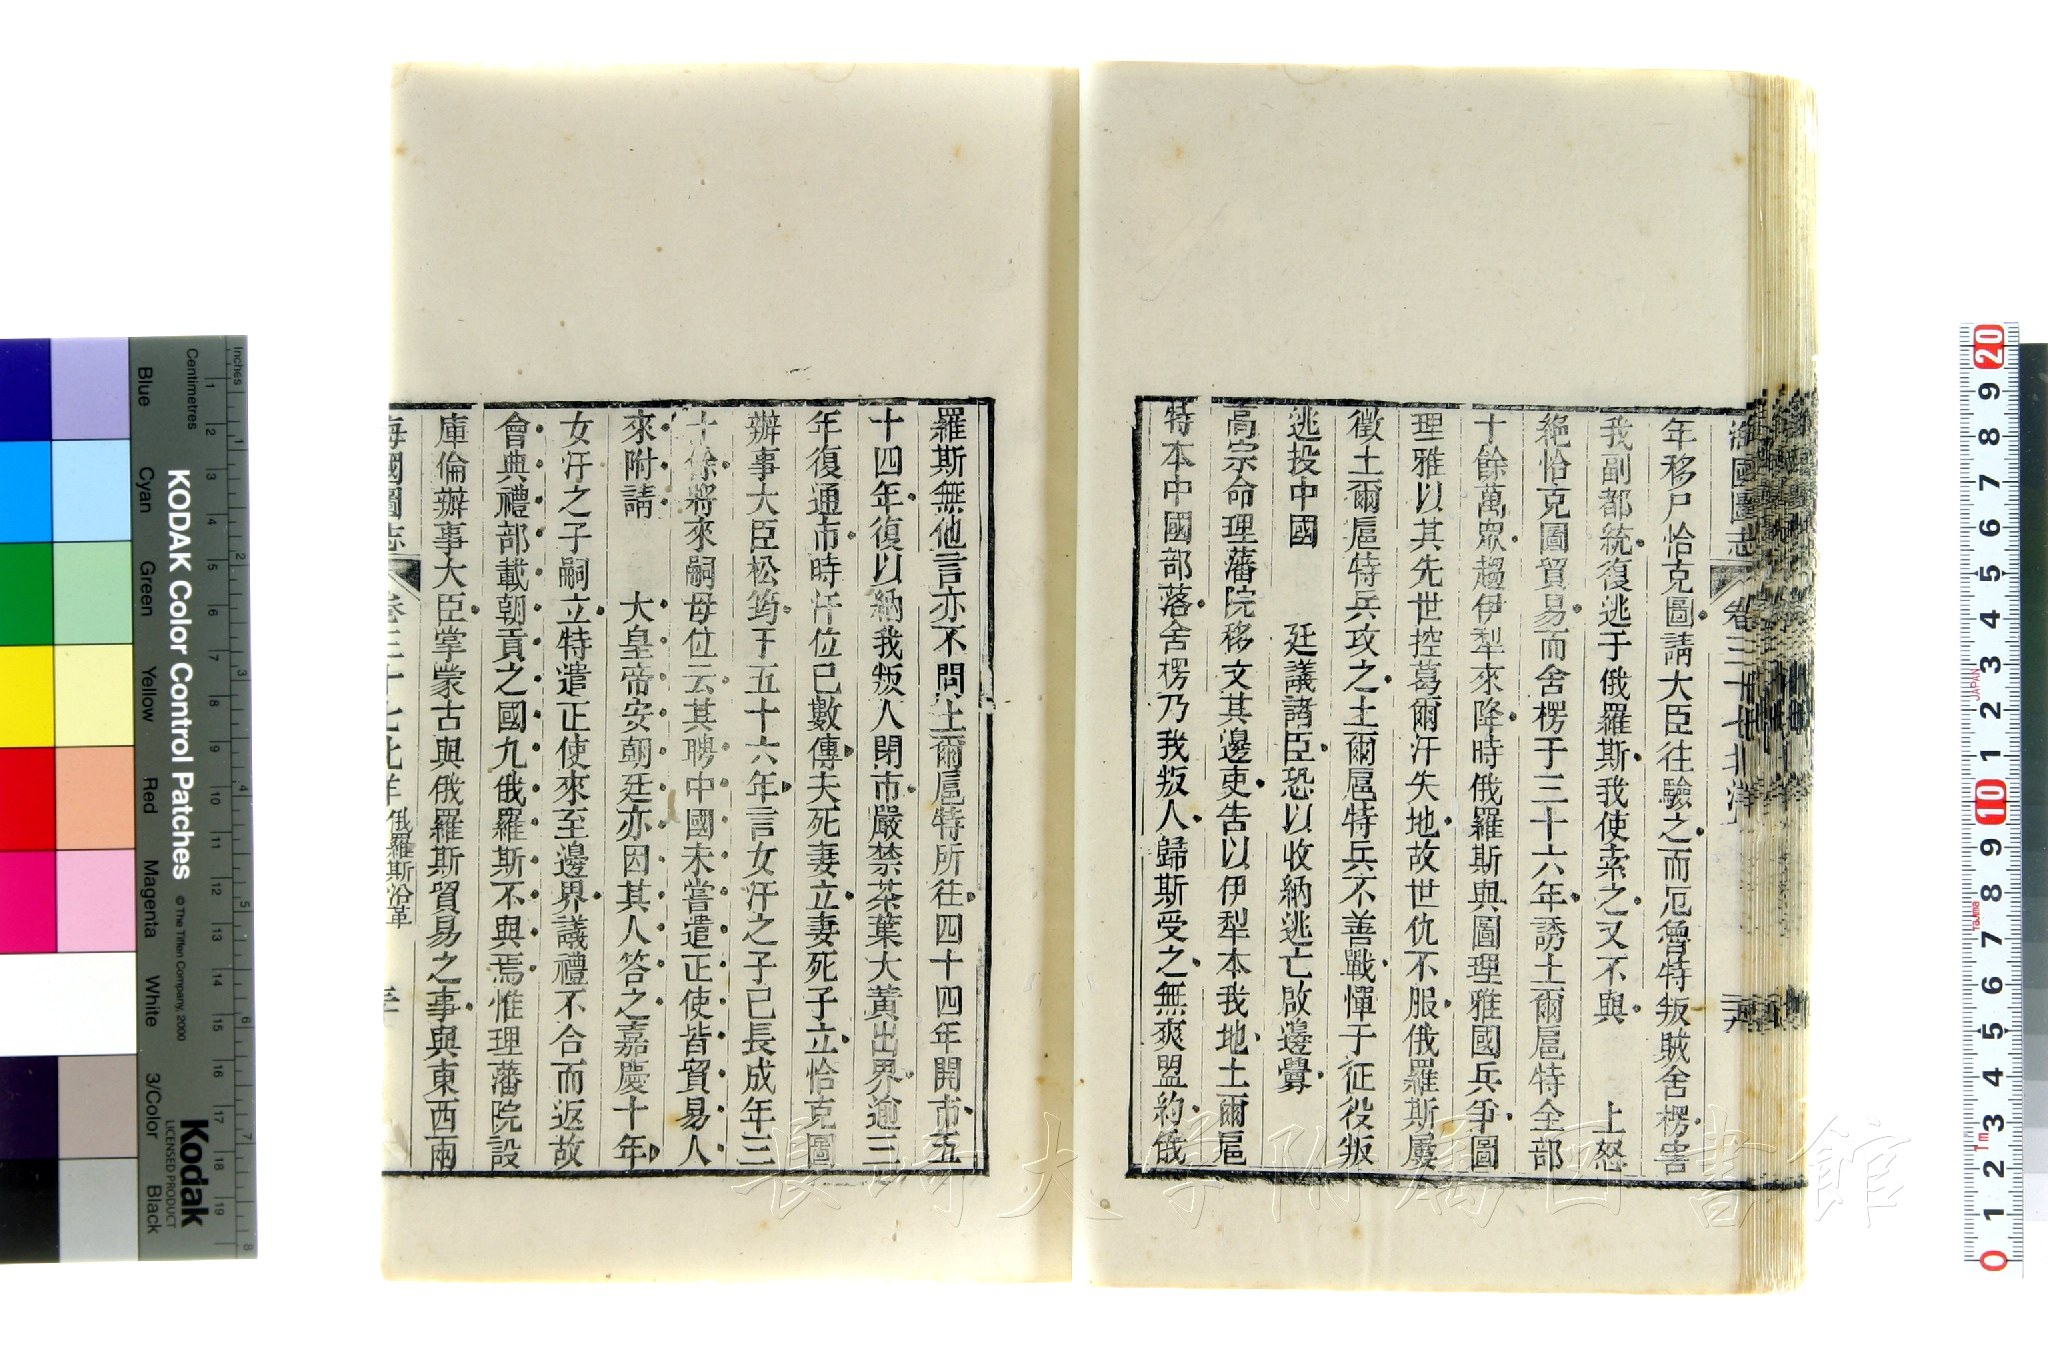 海國圖志 卷三十七 北洋
年移尸恰克圖請大臣往驗之而厄魯特叛賊舍楞害
我副都統復逃于俄羅斯我使索之又不與 上怒
絕恰克圖貿易而舍楞于三十六年誘土爾扈特全部
十餘萬眾趨伊犁來降時俄羅斯與圖理雅國兵爭圖
理雅以其先世控葛爾汗失地故世仇不服俄羅斯屢
徵土爾扈特兵攻之土爾扈特兵不善戰憚于征役叛
逃投中國 廷議諸臣恐以收納逃亡啟邊釁
高宗命理藩院移文其邊吏告以伊犁本我地土爾扈
特本中國部落舍楞乃我叛人歸斯受之無爽盟約俄
羅斯無他言亦不問土爾扈特所往四十四年開市五
十四年復以納我叛人閉市嚴禁茶葉大黃出界逾三
年復通市時汗位已數傳夫死妻立妻死子立恰克圖
辦事大臣松筠于五十六年言女汗之子已長成年三
十餘將來嗣母位云其聘中國未嘗遣正使皆貿易人
來附請 大皇帝安朝廷亦因其人答之嘉慶十年
女汗之子嗣立特遣正使來至邊界議禮不合而返故
會典禮部載朝貢之國九俄羅斯不與焉惟理藩院設
庫倫辦事大臣掌蒙古與俄羅斯貿易之事與東西兩
海國圖志 卷三十七 北洋 俄羅斯沿革
長崎大学附属図書館
KODAK Color Control Patches
© The Tiffen Company, 2000
Kodak
LICENSED PRODUCT
Blue Cyan Green Yellow Red Magenta White 3/Color Black
Inches 1 2 3 4 5 6 7 8
Centimetres 1 2 3 4 5 6 7 8 9 10 11 12 13 14 15 16 17 18 19
20 9 8 7 6 5 4 3 2 1 10 9 8 7 6 5 4 3 2 1 0
JAPAN